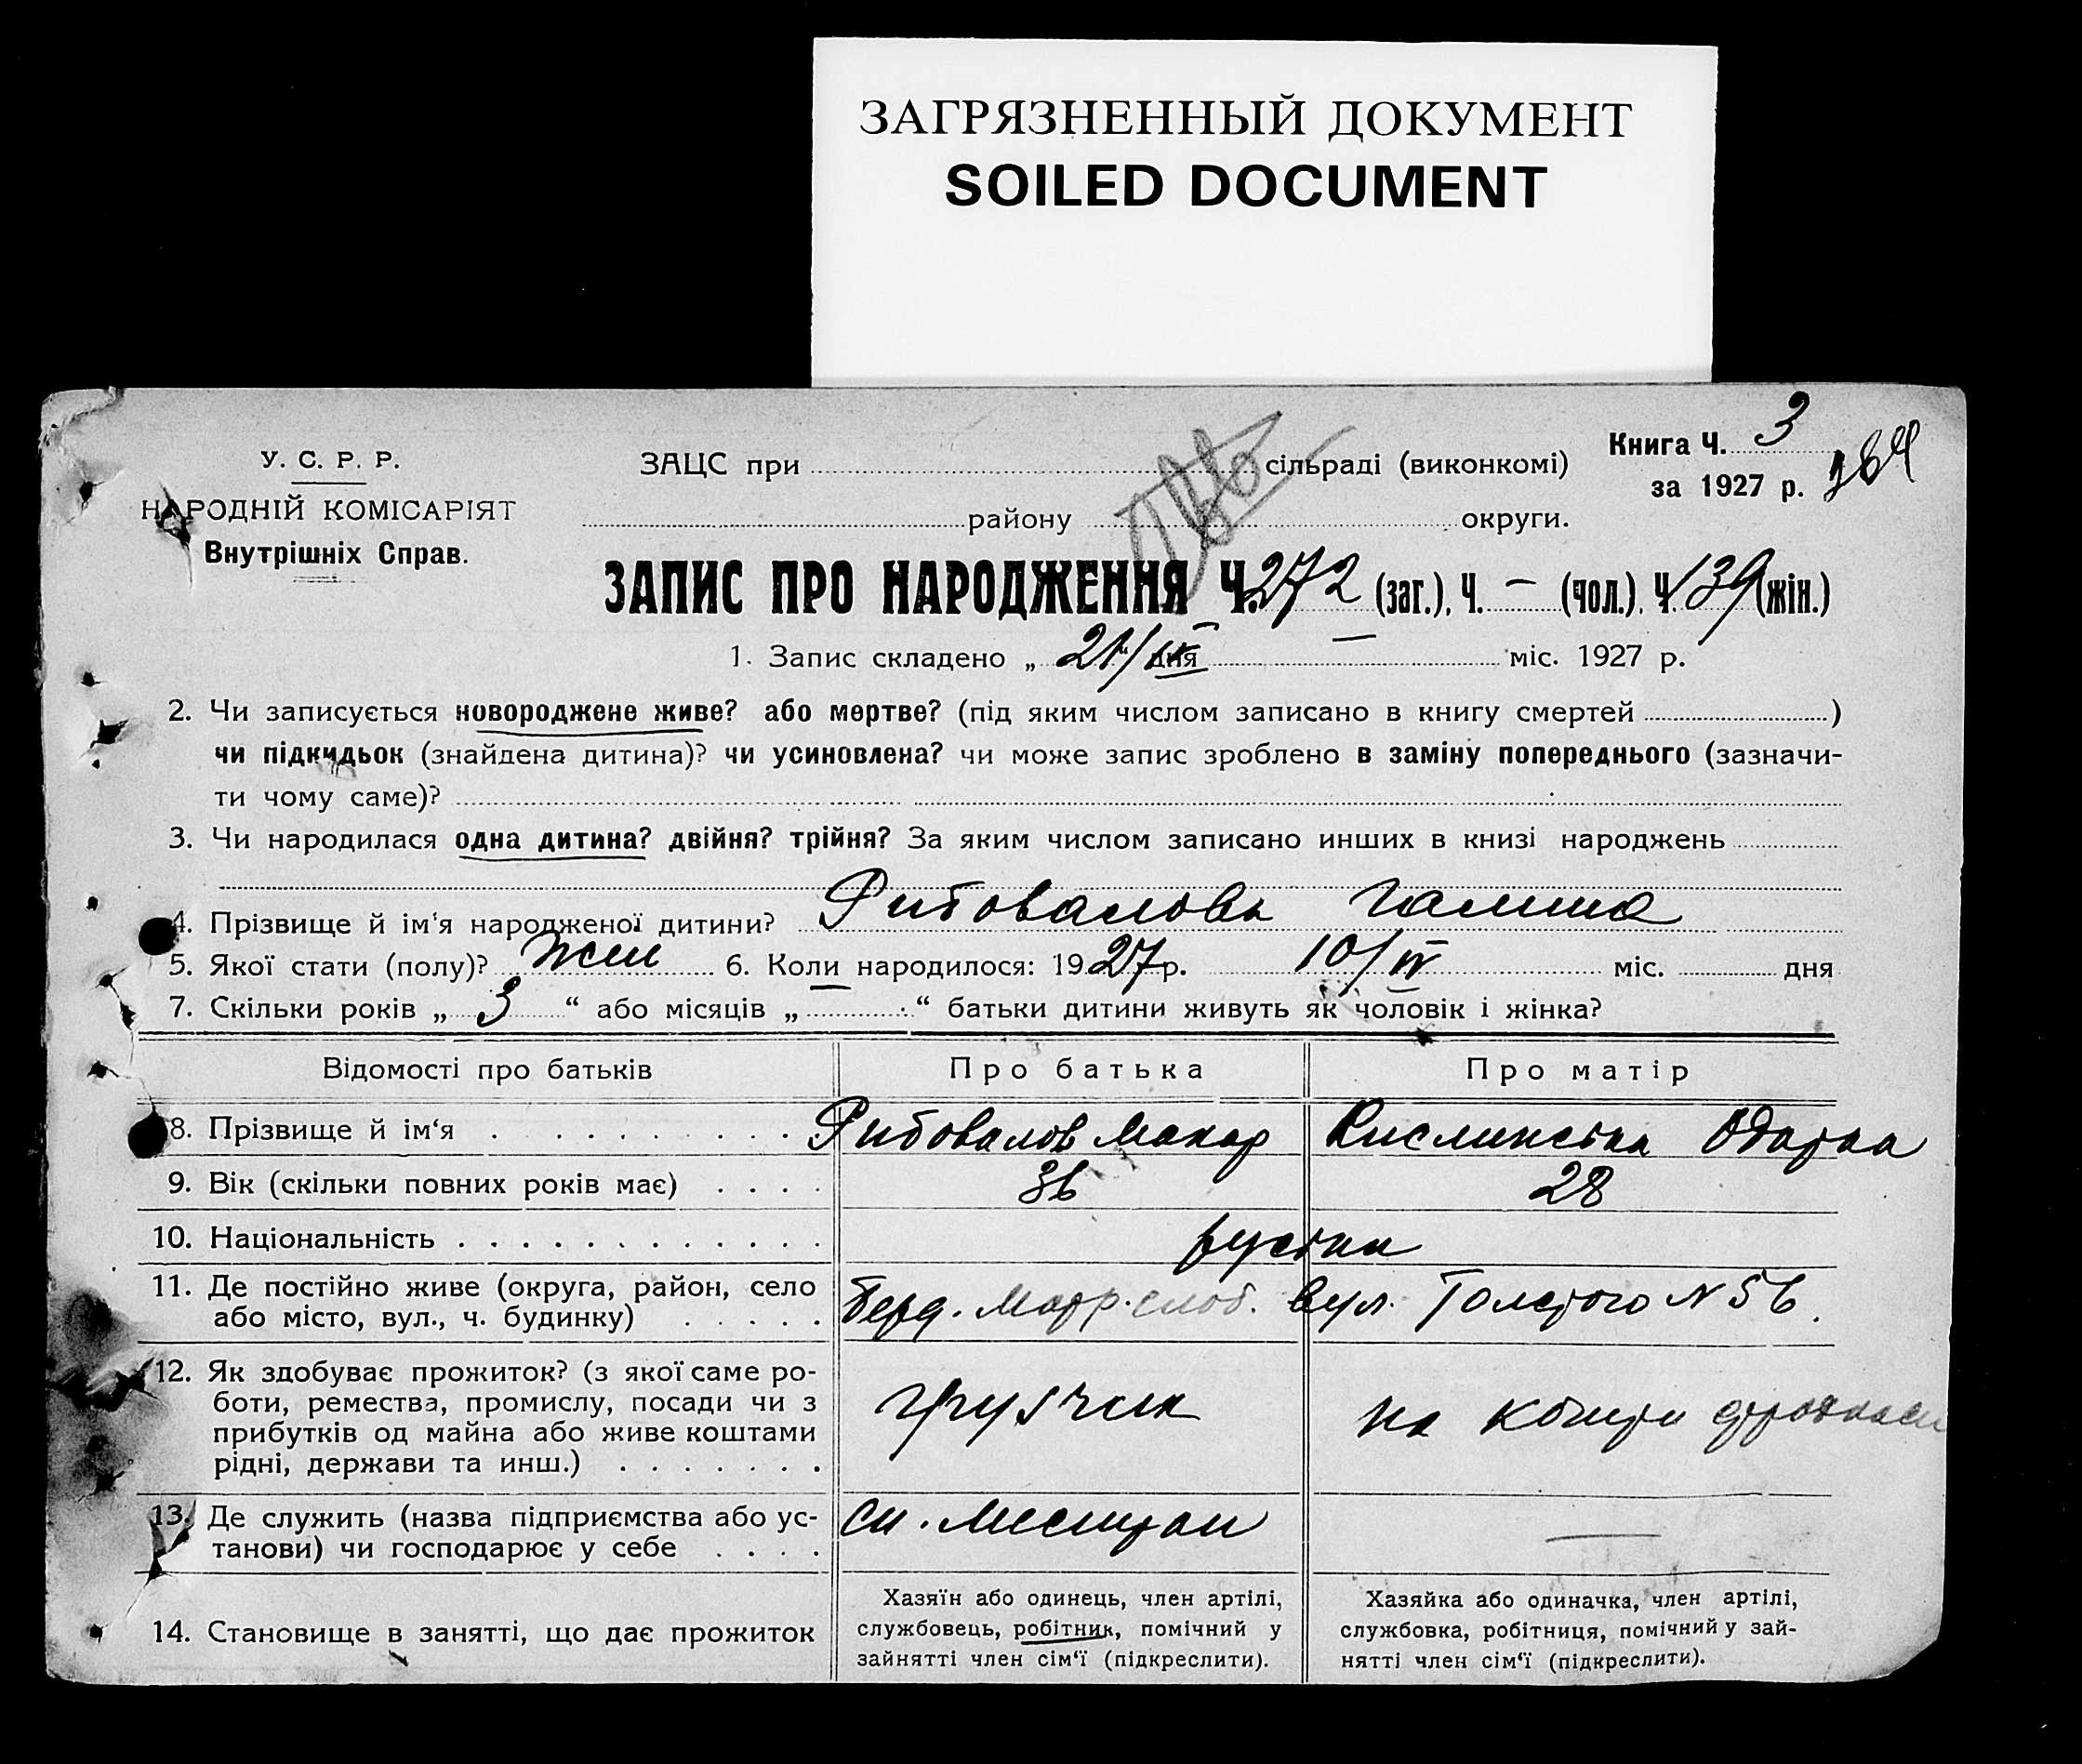 ЗАГРЯЗНЕННЫЙ ДОКУМЕНТ
SOILED DOCUMENT
Книга Ч. 3
за 1927 р.
У. С. Р. Р.
НАРОДНІЙ КОМІСАРІЯТ
Внутрішніх Справ.
ЗАЦС при сільраді (виконкомі)
району округи.
ЗАПИС ПРО НАРОДЖЕННЯ Ч. 272 (заг.), Ч. — (чол.). Ч. 139 (жін.)
1. Запис складено „ 21/ дня — міс. 1927 р.
2. Чи записується новороджене живе? або мертве? (під яким числом записано в книгу смертей )
чи підкидьок (знайдена дитина)? чи усиновлена? чи може запис зроблено в заміну попереднього (зазначи-
ти чому саме)?
3. Чи народилася одна дитина? двійня? трійня? За яким числом записано инших в книзі народжень
4. Прізвище й ім'я народженої дитини? Рибовалова Галина
5. Якої стати (полу)? жін 6. Коли народилося: 1927 р. 10/IV міс. дня
7. Скільки років „ 3 “ або місяців „ “ батьки дитини живуть як чоловік і жінка?
Відомості про батьків Про батька Про матір
8. Прізвище й ім'я Рибовалов Макар Кислинська Одарка
9. Вік (скільки повних років має) 36 28
10. Національність руські
11. Де постійно живе (округа, район, село
або місто, вул., ч. будинку) Берд. слоб. вул. Толстого N 56.
12. Як здобуває прожиток? (з якої саме ро-
боти, ремества, промислу, посади чи з
прибутків од майна або живе коштами
рідні, держави та инш.)
грузчик на кошти
13. Де служить (назва підприємства або ус-
танови) чи господарює у себе
—
14. Становище в занятті, що дає прожиток
Хазяїн або одинець, член артілі,
службовець, робітник, помічний у
зайнятті член сім‘ї (підкреслити).
Хазяйка або одиначка, член артілі,
службовка, робітниця, помічний у зай-
нятті член сім‘ї (підкреслити).